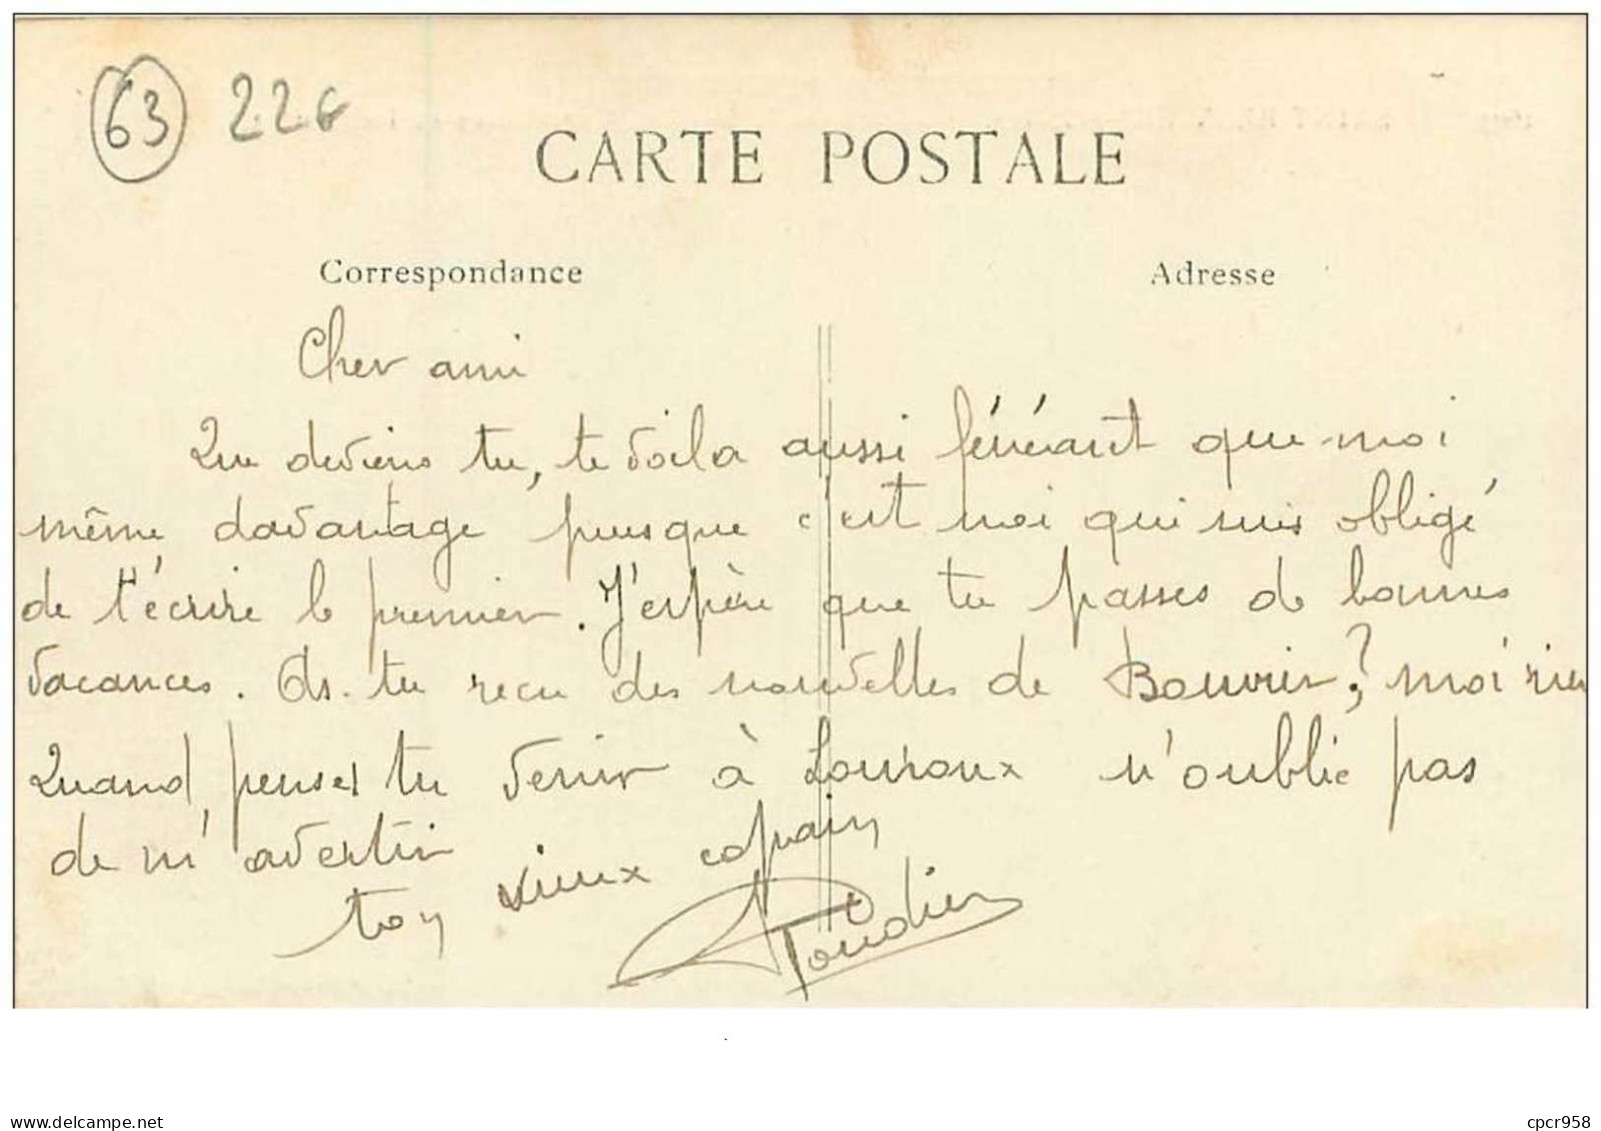 63 226
CARTE POSTALE
Correspondance Adresse
Cher ami
Que deviens tu, te voila aussi fénéant que moi
même davantage puisque c'est moi qui suis obligé
de t'écrire le premier. J'espère que tu passes de bonnes
vacances. As-tu recu des nouvelles de Bouvier? moi rien
Quand penses tu venir à Louroux n'oublie pas
de m'avertir
ton vieux copain
www.delcampe.net cpcr958